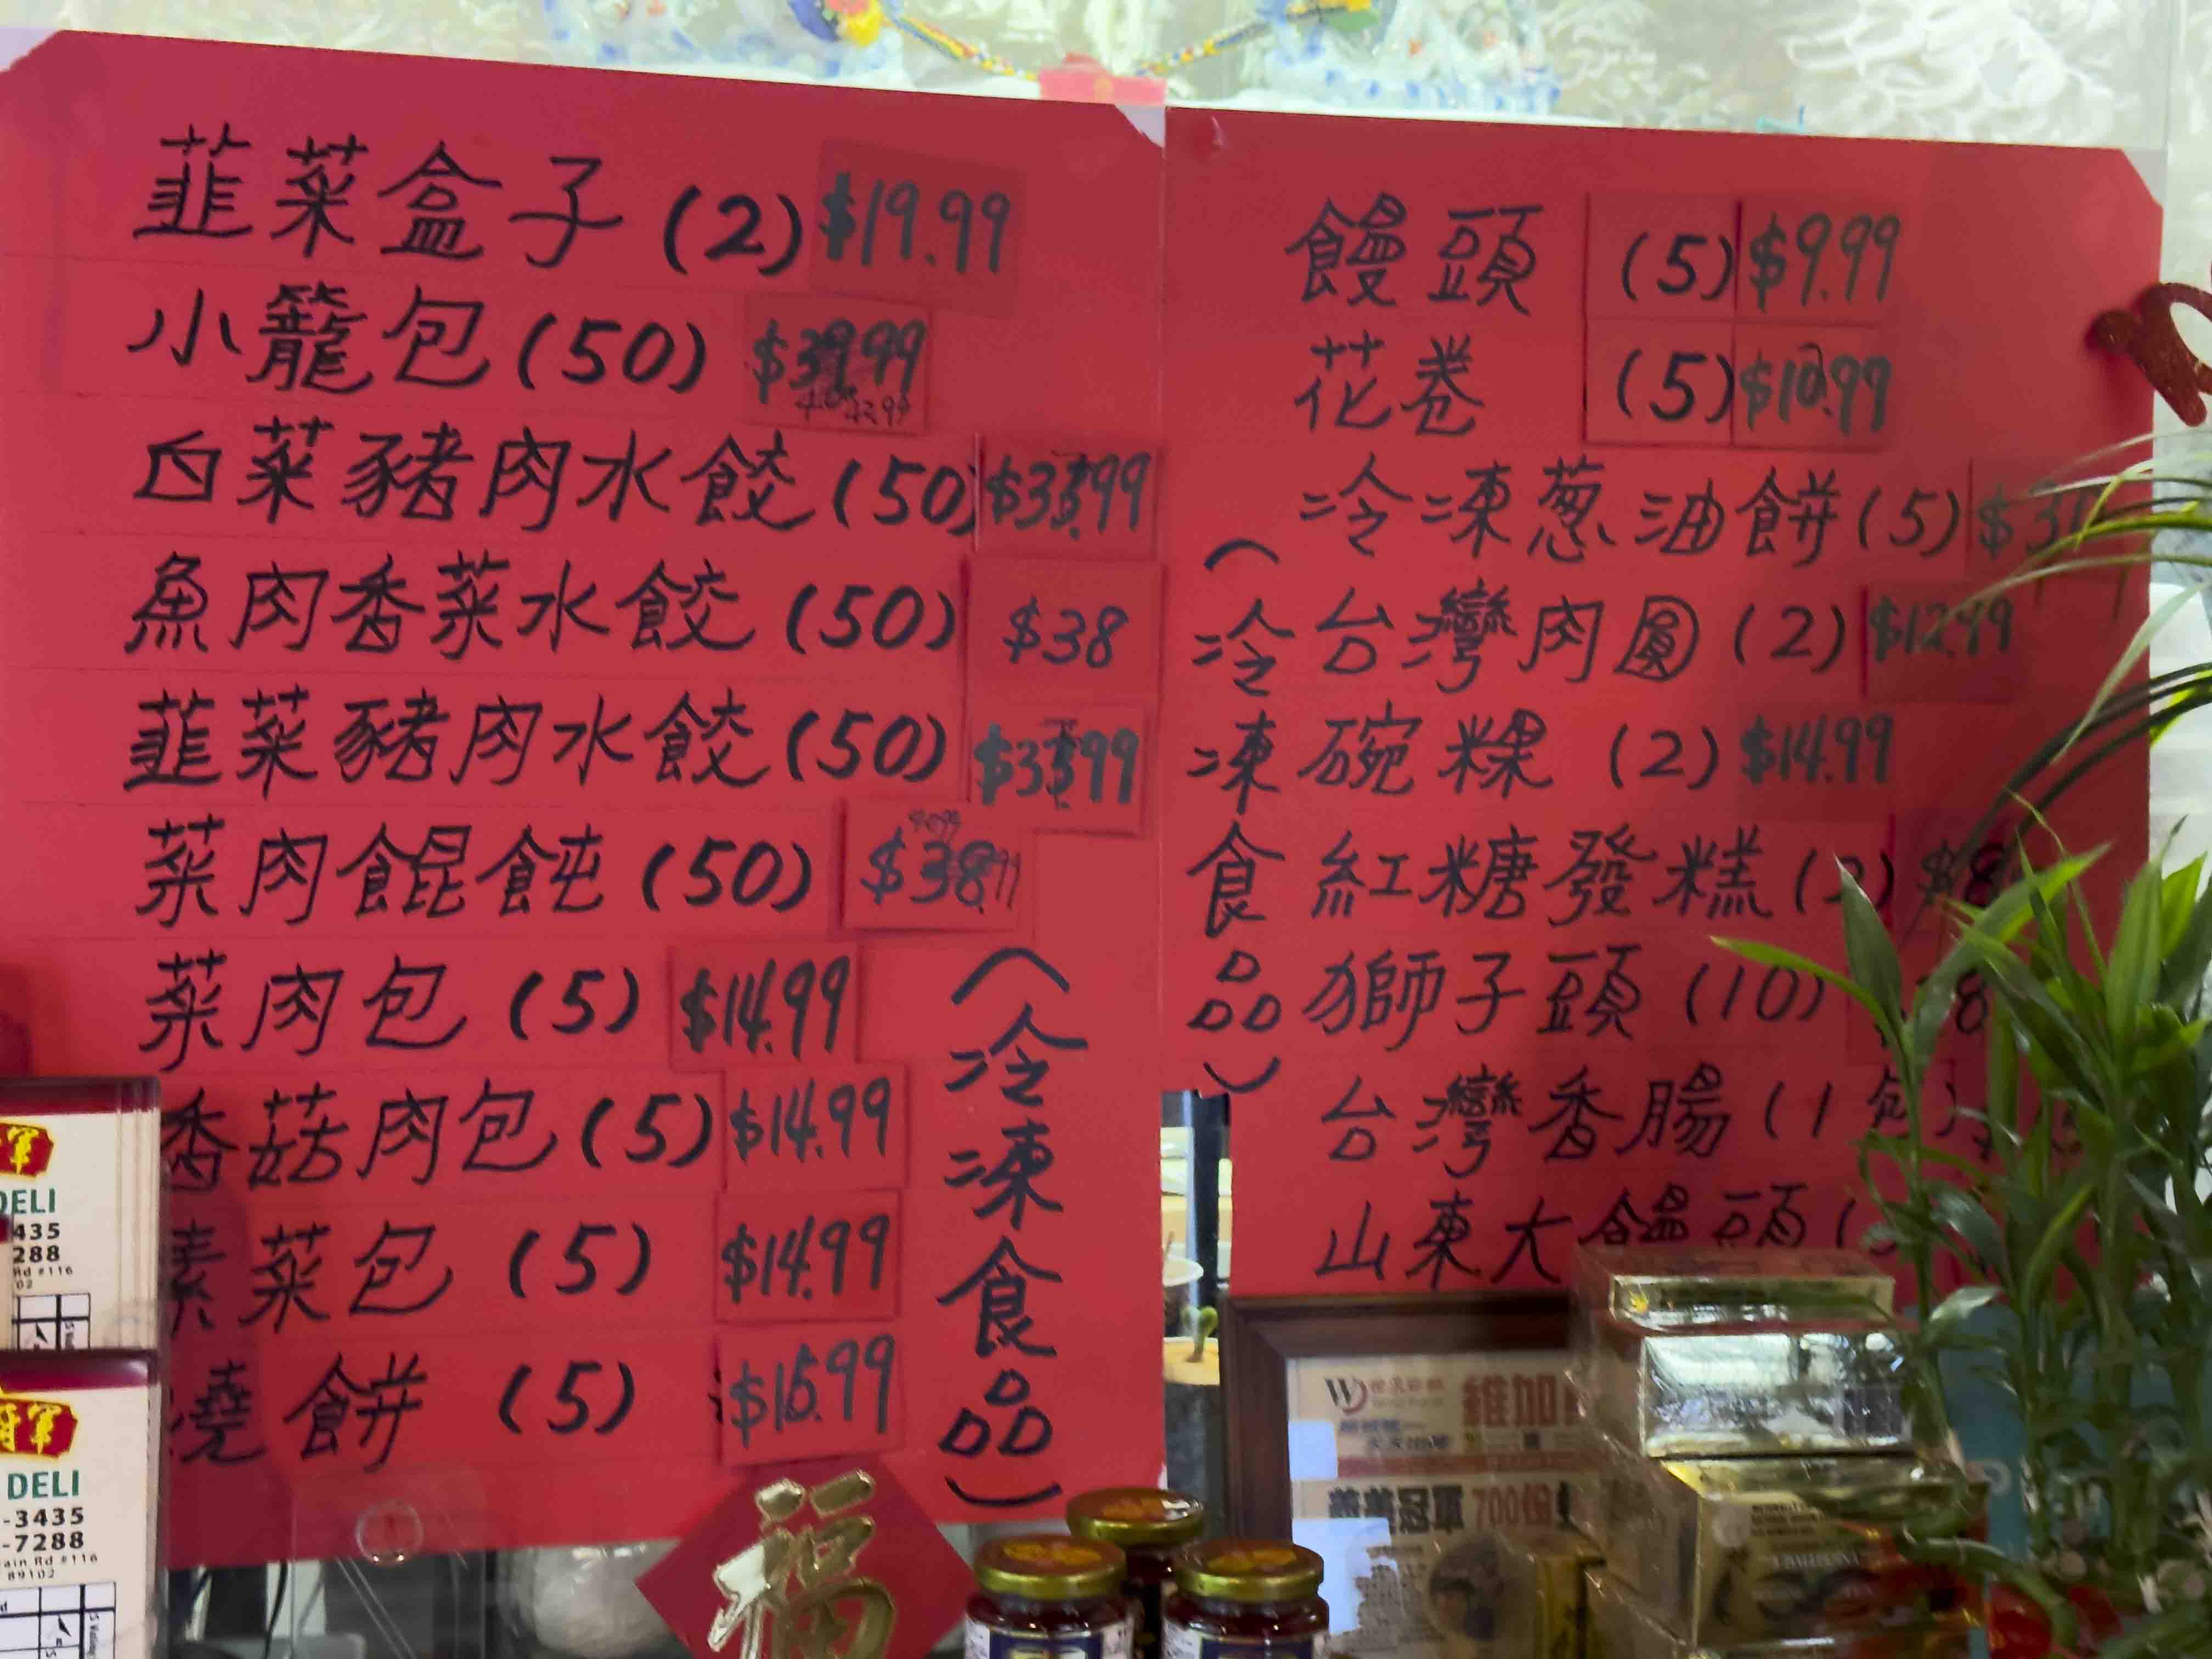 韮菜盒子 (2) $19.99
小籠包 (50) $39.99
42.99
白菜豬肉水餃 (50) $35.99
魚肉香菜水餃 (50) $38
韮菜豬肉水餃 (50) $35.99
菜肉餛飩 (50) $38.99
菜肉包 (5) $14.99
香菇肉包 (5) $14.99
素菜包 (5) $14.99
燒餅 (5) $15.99
(冷凍食品)
饅頭 (5) $9.99
花卷 (5) $10.99
冷凍葱油餅 (5)
台灣肉圓 (2) $12.99
碗粿 (2) $14.99
紅糖發糕 (2) $8
獅子頭 (10) 8
台灣香腸 (1包)
山東大饅頭
(冷凍食品)
軍
DELI
435
288
Rd #116
02
將軍
DELI
-3435
-7288
ain Rd #116
89102
福
W
維加
冠軍 700份